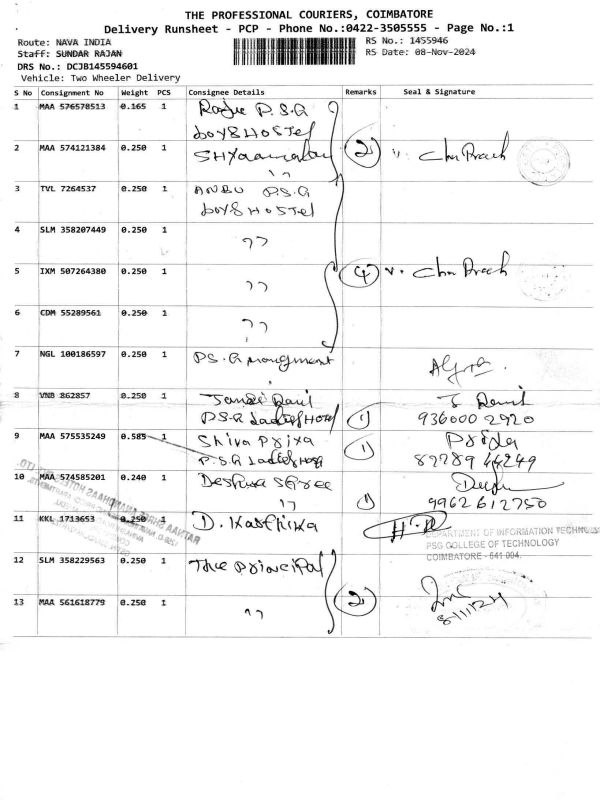 THE PROFESSIONAL COURIERS, COIMBATORE
Delivery Runsheet - PCP - Phone No.:0422-3505555 - Page No.:1
Route: NAVA INDIA
RS No.: 1455946
Staff: SUNDAR RAJAN
RS Date: 08-Nov-2024
DRS No.: DCJB145594601
Vehicle: Two Wheeler Delivery
S No Consignment No Weight PCS Consignee Details Remarks Seal & Signature
1 MAA 576578513 0.165 1 P.S.G
boys HOSTel
2 MAA 574121384 0.250 1 2
,,
3 TVL 7264537 0.250 1 ANBU P.S.G
boys HOSTel
4 SLM 358207449 0.250 1 ,,
5 IXM 507264380 0.250 1 ,, 4
6 CDM 55289561 0.250 1 ,,
7 NGL 100186597 0.250 1 PS.G
8 VNB 862857 0.250 1
P.S.G Ladies Hostel 1 936000 2920
9 MAA 575535249 0.585 1 Shiva Priya 1 Priya
P.S.G Ladies 82289 44249
10 MAA 574585201 0.240 1 1
,, 9962612750
11 KKL 1713653 0.250 1 D. Karthika
DEPARTMENT OF INFORMATION TECHNOLOGY
PSG COLLEGE OF TECHNOLOGY
COIMBATORE - 641 004.
12 SLM 358229563 0.250 1 The principal
13 MAA 561618779 0.250 1 ,, 2
8/11/24